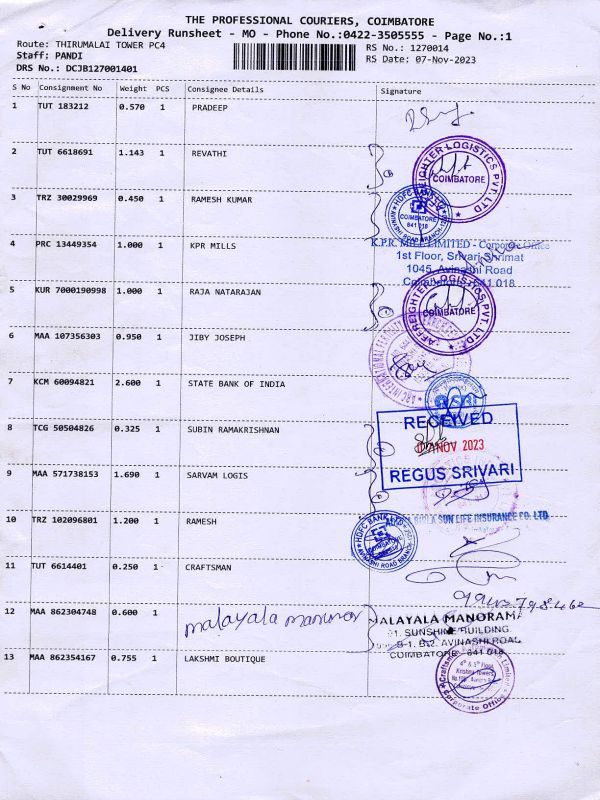 THE PROFESSIONAL COURIERS, COIMBATORE
Delivery Runsheet - MO - Phone No.:0422-3505555 - Page No.:1
Route: THIRUMALAI TOWER PC4
RS No.: 1270014
Staff: PANDI
RS Date: 07-Nov-2023
DRS No.: DCJB127001401
S No Consignment No Weight PCS Consignee Details Signature
1 TUT 183212 0.570 1 PRADEEP
2 TUT 6618691 1.143 1 REVATHI
AFFREIGHTER LOGISTICS PVT. LTD.
COIMBATORE
3 TRZ 30029969 0.450 1 RAMESH KUMAR
HDFC BANK LTD
COIMBATORE
641 018
AVINASHI ROAD BRANCH
4 PRC 13449354 1.000 1 KPR MILLS
K.P.R. MILL LIMITED - Corporate Office
1st Floor, Srivari Shrimat
1045, Avinashi Road
Coimbatore - 641 018
5 KUR 7000190998 1.000 1 RAJA NATARAJAN
AFFREIGHTER LOGISTICS PVT. LTD.
COIMBATORE
6 MAA 107356303 0.950 1 JIBY JOSEPH
7 KCM 60094821 2.600 1 STATE BANK OF INDIA
SBI
8 TCG 50504826 0.325 1 SUBIN RAMAKRISHNAN
RECEIVED
NOV 2023
REGUS SRIVARI
9 MAA 571738153 1.690 1 SARVAM LOGIS
10 TRZ 102096801 1.200 1 RAMESH
SUN LIFE INSURANCE CO. LTD.
HDFC BANK LTD
AVINASHI ROAD BRANCH
11 TUT 6614401 0.250 1 CRAFTSMAN
12 MAA 862304748 0.600 1 malayala manorama
MALAYALA MANORAMA
SUNSHINE BUILDING
AVINASHI ROAD
COIMBATORE - 641 018
13 MAA 862354167 0.755 1 LAKSHMI BOUTIQUE
4th & 5th Floor,
Krishna Towers
Corporate Office